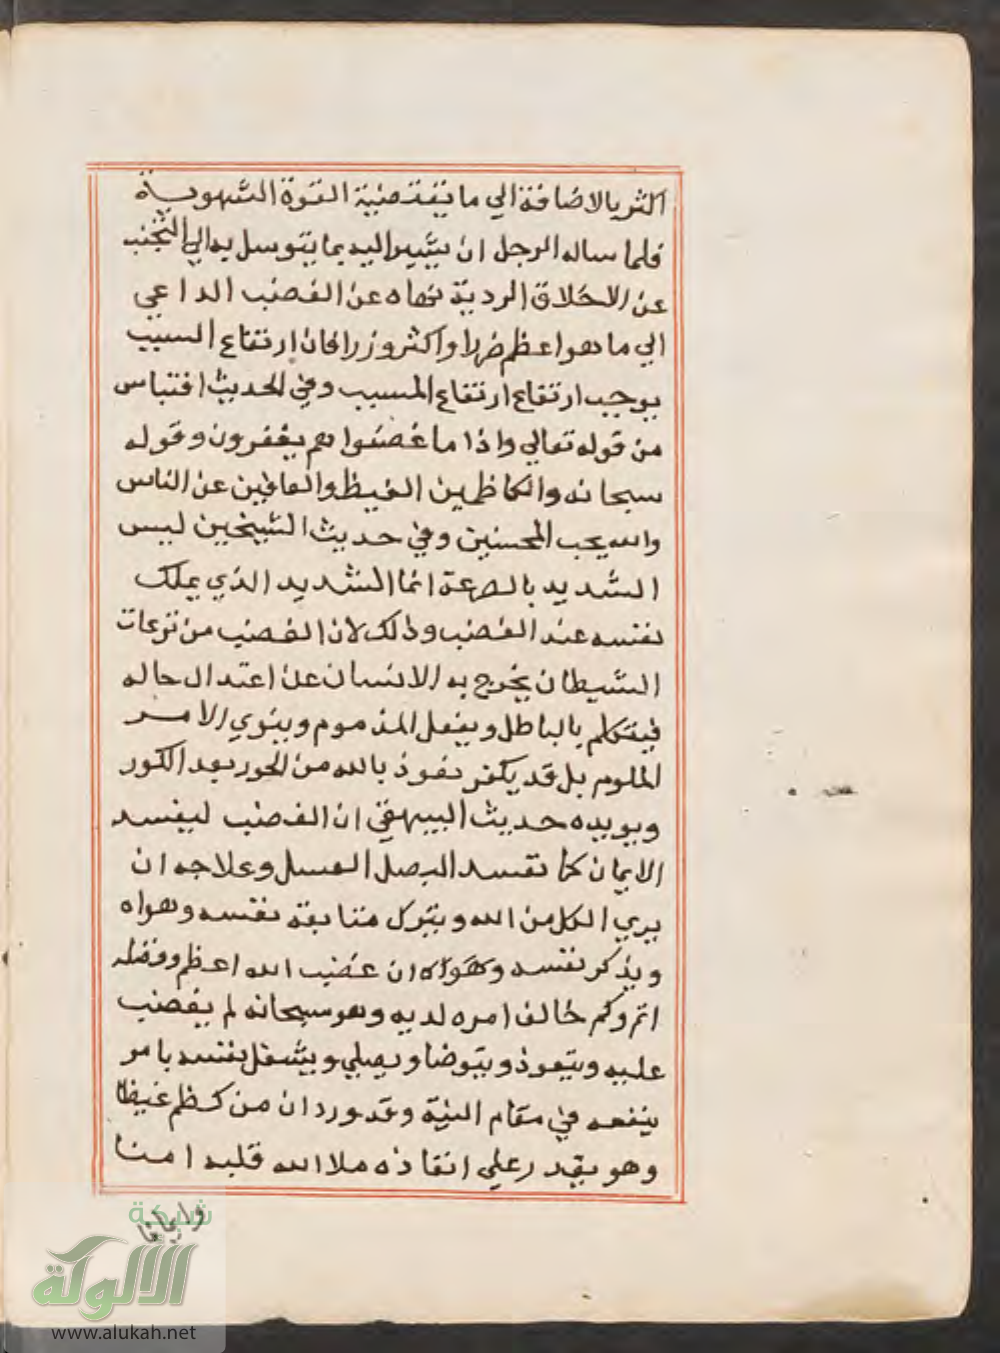 اكثر بالاضافة الي ما تقتضيه القوة الشهوية
فلما ساله الرجل ان يشير اليه بما يتوسل به الي التجنب
عن الاخلاق الردية نهاه عن الغضب الداعي
الي ما هو اعظم ضررا واكثر وزرا فان ارتفاع السبب
يوجب ارتفاع ارتفاع المسبب وفي الحديث اقتباس
من قوله تعالي واذا ما غضبوا هم يغفرون وقوله
سبحانه والكاظمين الغيظ والعافين عن الناس
والله يحب المحسنين وفي حديث الشيخين ليس
الشديد بالصرعة انما الشديد الذي يملك
نفسه عند الغضب وذلك لان الغضب من نزعات
الشيطان يخرج به الانسان عن اعتدال حاله
فيتكلم بالباطل ويفعل المذموم وينوي الامر
الملوم بل قد يكفر نعوذ بالله من الحور بعد الكور
ويويده حديث البيهقي ان الغضب ليفسد
الايمان كما تفسد البصل العسل وعلاجه ان
يري الكل من الله ويترك متابعة نفسه وهواه
ويذكر نفسه وهواه ان غضب الله اعظم وفضله
اتم وكم خالف امره لديه وهو سبحانه لم يغضب
عليه ويتعوذ ويتوضا ويصلي ويشغل نفسه بامر
ينفعه في مقام النية وقد ورد ان من كظم غيظا
وهو يقدر علي انفاذه ملا الله قلبه امنا
وايمانا
شبكة
الألوكة
www.alukah.net